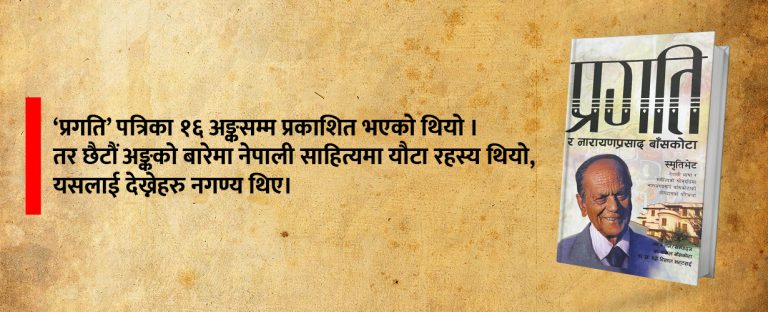 ‘प्रगति’ पत्रिका १६ अङ्कसम्म प्रकाशित भएको थियो ।
तर छैटौं अङ्कको बारेमा नेपाली साहित्यमा यौटा रहस्य थियो,
यसलाई देख्नेहरु नगण्य थिए।
प्रगति
र नारायणप्रसाद बाँसकोटा
स्मृतिभेट